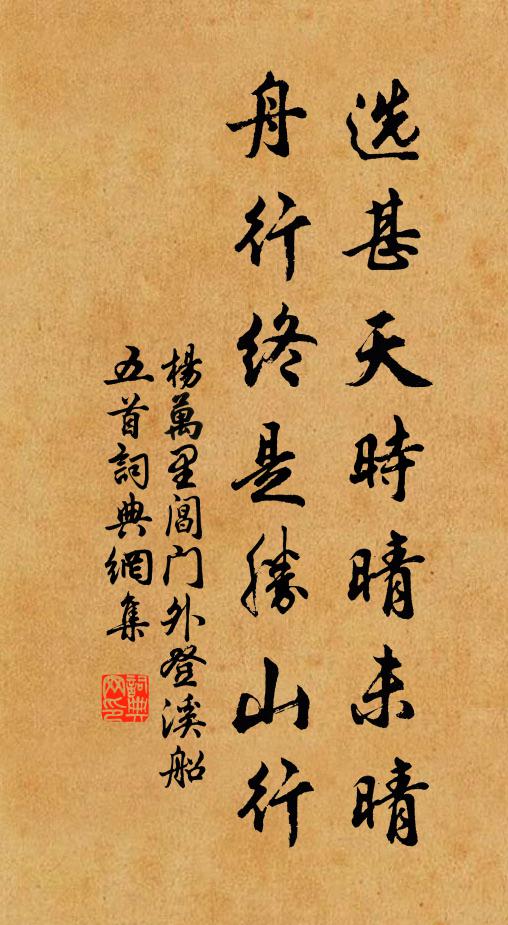 选甚天時晴未晴
舟行终是勝山行
楊萬里閶门外登溪船
五首詞典網集
詞典網印